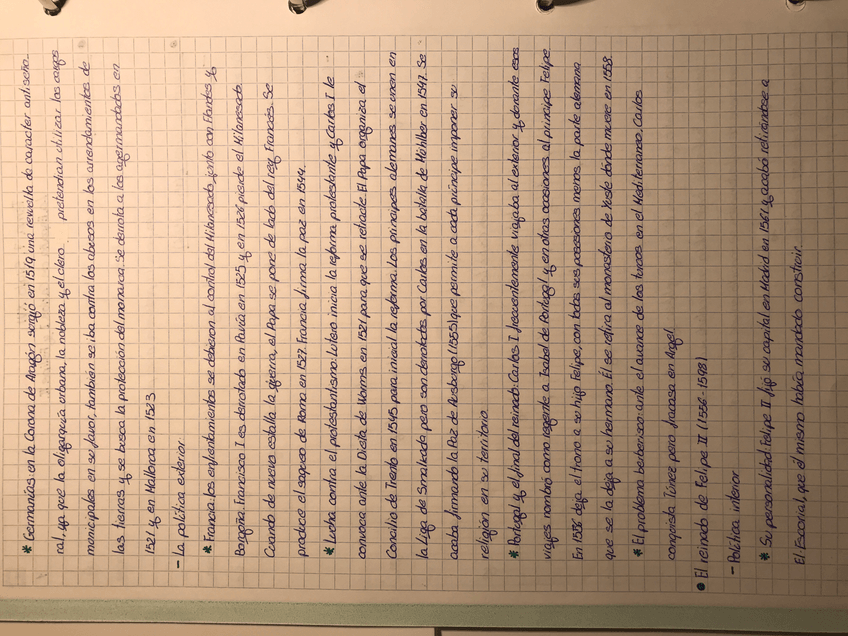 * Germanías en la Corona de Aragón surgió en 1519, una revuelta de caracter antiseño-
ral, ya que la oligarquía urbana, la nobleza y el clero pretendían utilizar los cargos
municipales en su favor, también se iba contra los abusos en los arrendamientos de
las tierras y se busca la protección del monarca. Se derrota a los agermandados en
1521 y en Mallorca en 1523
- La política exterior
* Francia: los enfrentamientos se debieron al control del Milanesado junto con Flandes y
Borgoña. Francisco I es derrotado en Pavía en 1525 y en 1526 pierde el Milanesado.
Cuando de nuevo estalla la guerra, el Papa se pone de lado del rey Francés. Se
produce el saqueo de Roma en 1527. Francia firma la paz en 1544.
* Lucha contra el protestantismo: Lutero inicia la reforma protestante y Carlos I le
convoca ante la Dieta de Worms en 1521 para que se retracte. El Papa organiza el
Concilio de Trento en 1545 para iniciar la reforma. Los principes alemanes se unen en
la Liga de Smalkada pero son derrotados por Carlos en la batalla de Mühlber en 1547. Se
acaba firmando la Paz de Ausburgo (1555) que permite a cada principe imponer su
religión en su territorio
* Portugal y el final del reinado: Carlos I frecuentemente viajaba al exterior y durante esos
viajes nombró como regente a Isabel de Portugal y en otras ocasiones al príncipe Felipe.
En 1556 deja el trono a su hijo Felipe, con todas sus posesiones menos la parte alemana
que se la deja a su hermano. Él se retira al monasterio de Yuste dónde muere en 1558
* El problema berberisco: ante el avance de los turcos en el Mediterraneo, Carlos
conquista Túnez pero fracasa en Argel
• El reinado de Felipe II (1556-1598)
- Política interior
* Su personalidad: Felipe II fijó su capital en Madrid en 1561 y acabó retirándose a
El Escorial, que él mismo había mandado construir.